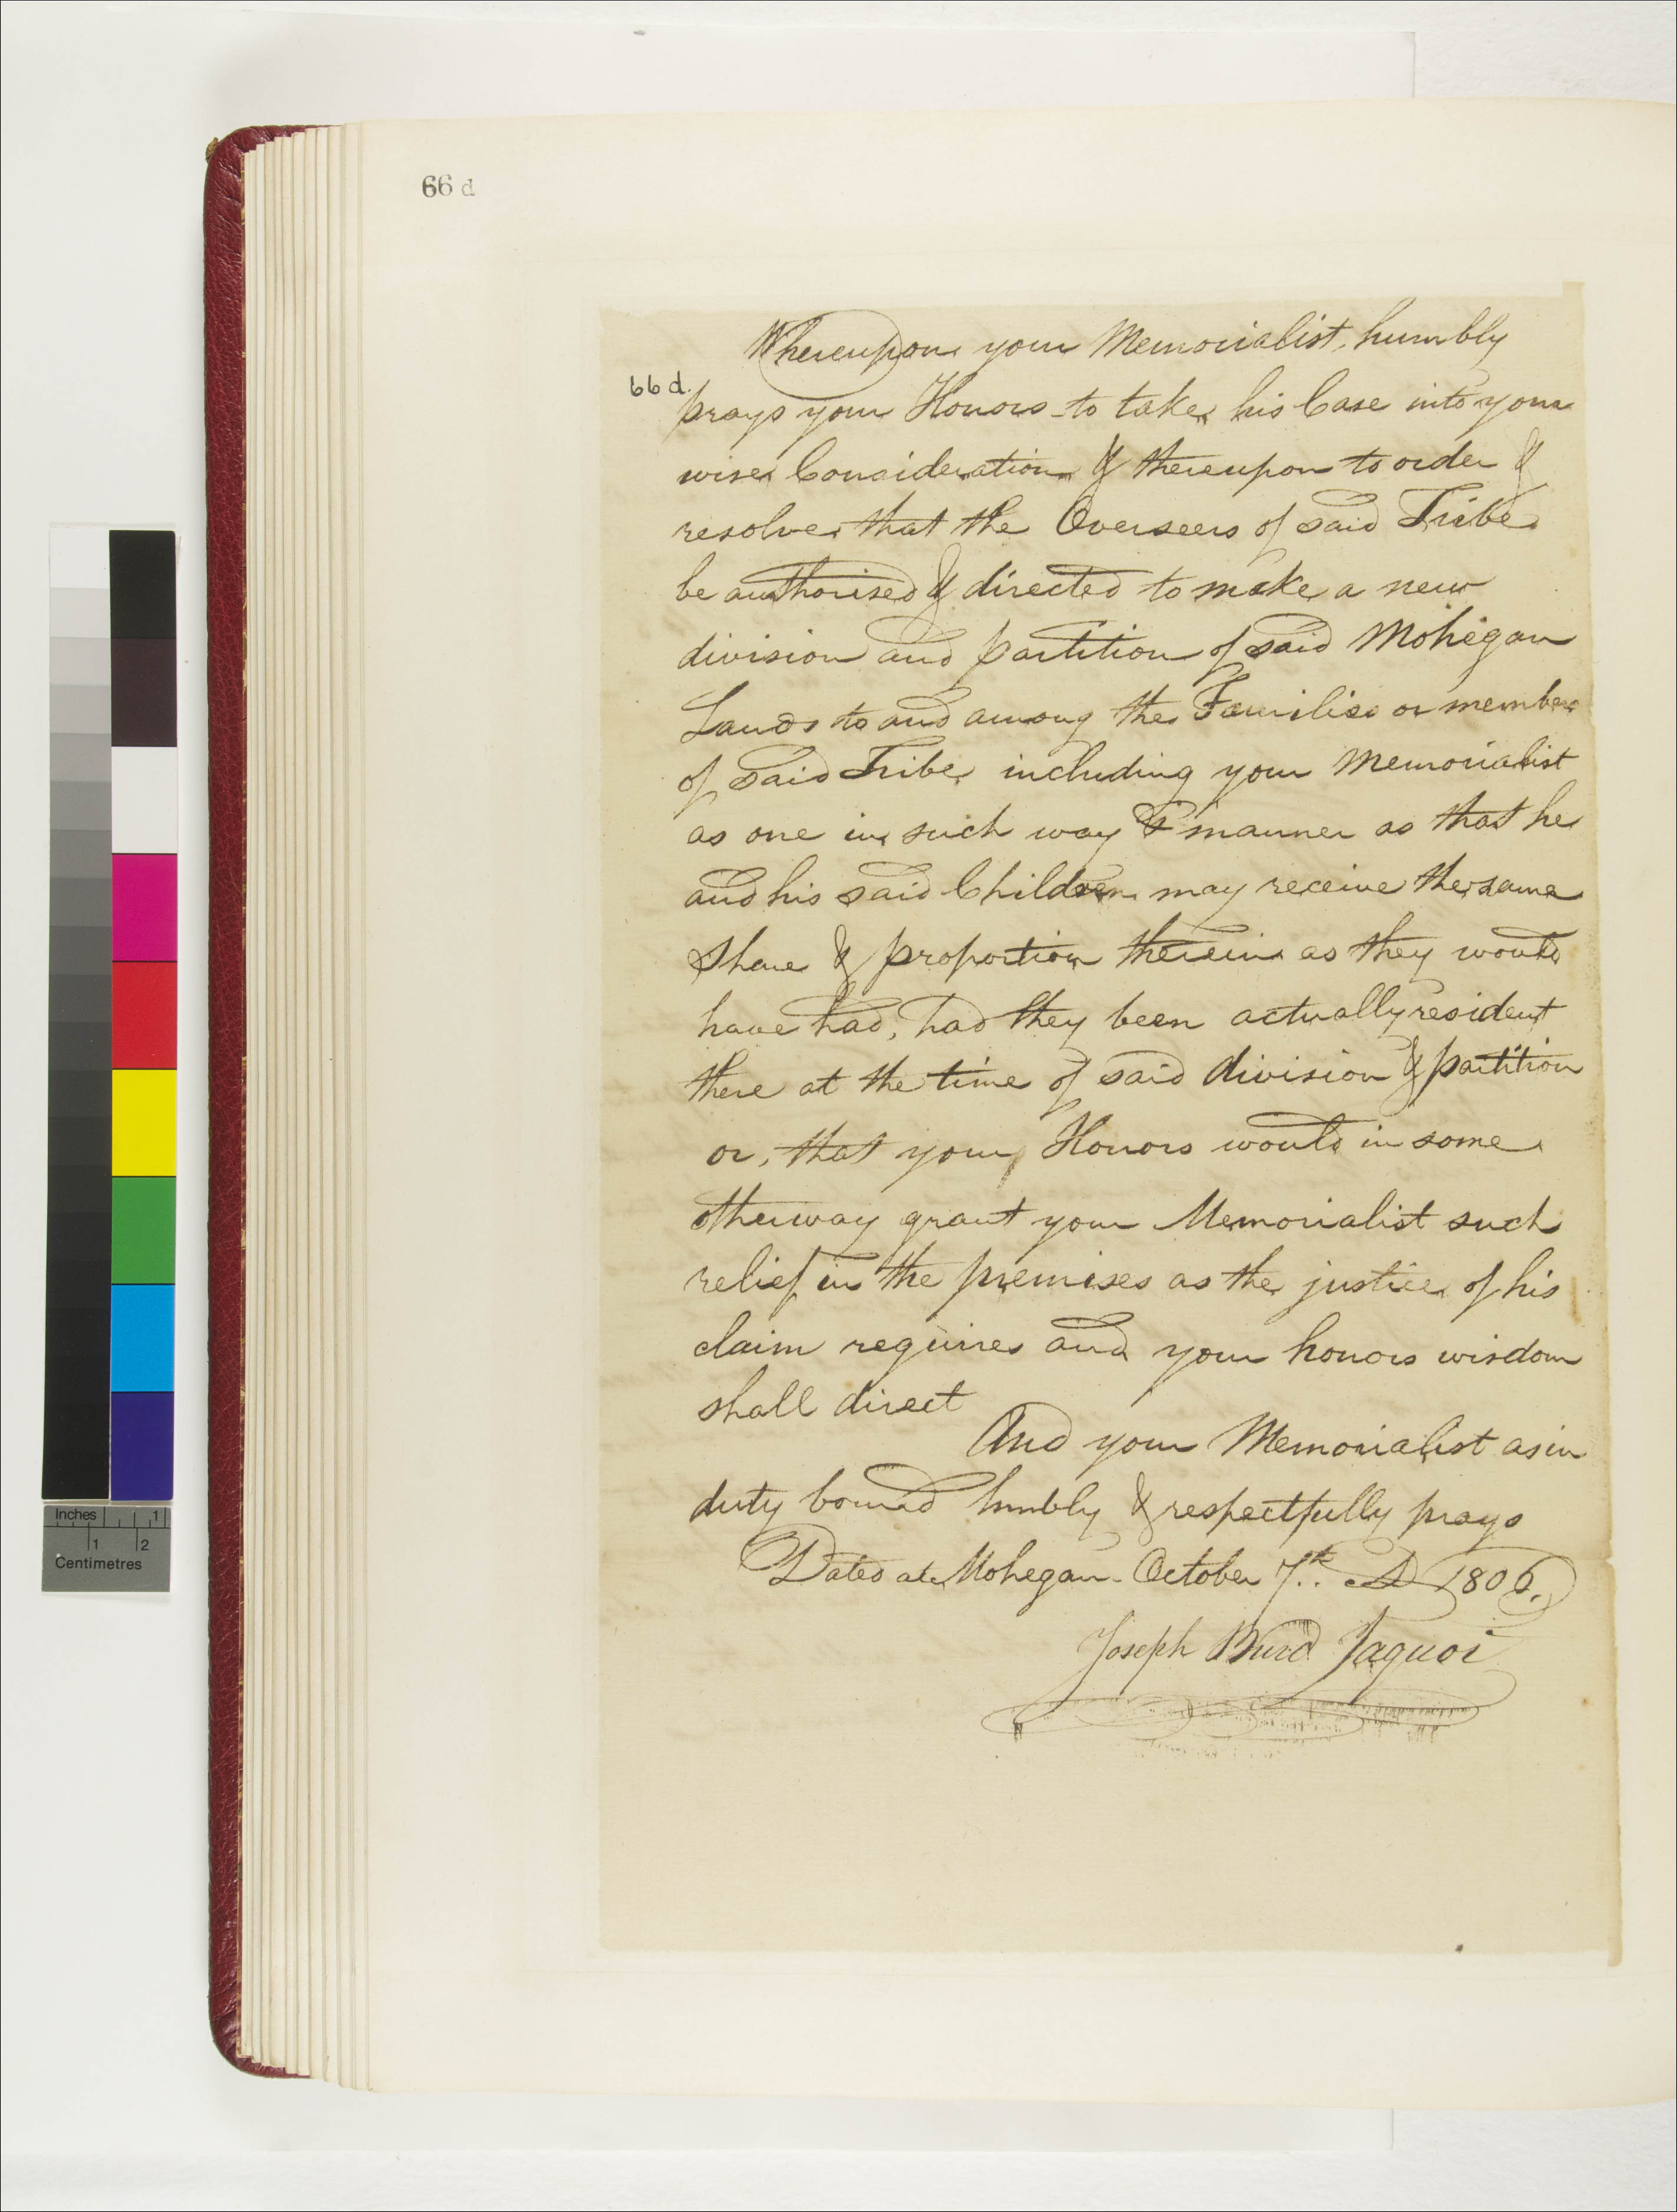 66 d
Whereupon your Memorialist, humbly
66 d.
prays your Honors to take his Case into your
wise Consideration & thereupon to order &
resolve that the Overseers of said Tribe
be authorised & directed to make a new
division and partition of said Mohegan
Lands to and among the Families or members
of said Tribe including your Memorialist
as one in such way & manner as that he
and his said Children may receive the same
share & proportion therein as they would
have had, had they been actually resident
there at the time of said division & partition
or, that your Honors would in some
otherway grant your Memorialist such
relief in the premises as the justice of his
claim requires and your honors wisdom
shall direct
And your Memorialist as in
duty bound humbly & respectfully prays
Dated at Mohegan October 7th. AD 1806.
Joseph Burd Jaquoi
Inches 1
1 2
Centimetres